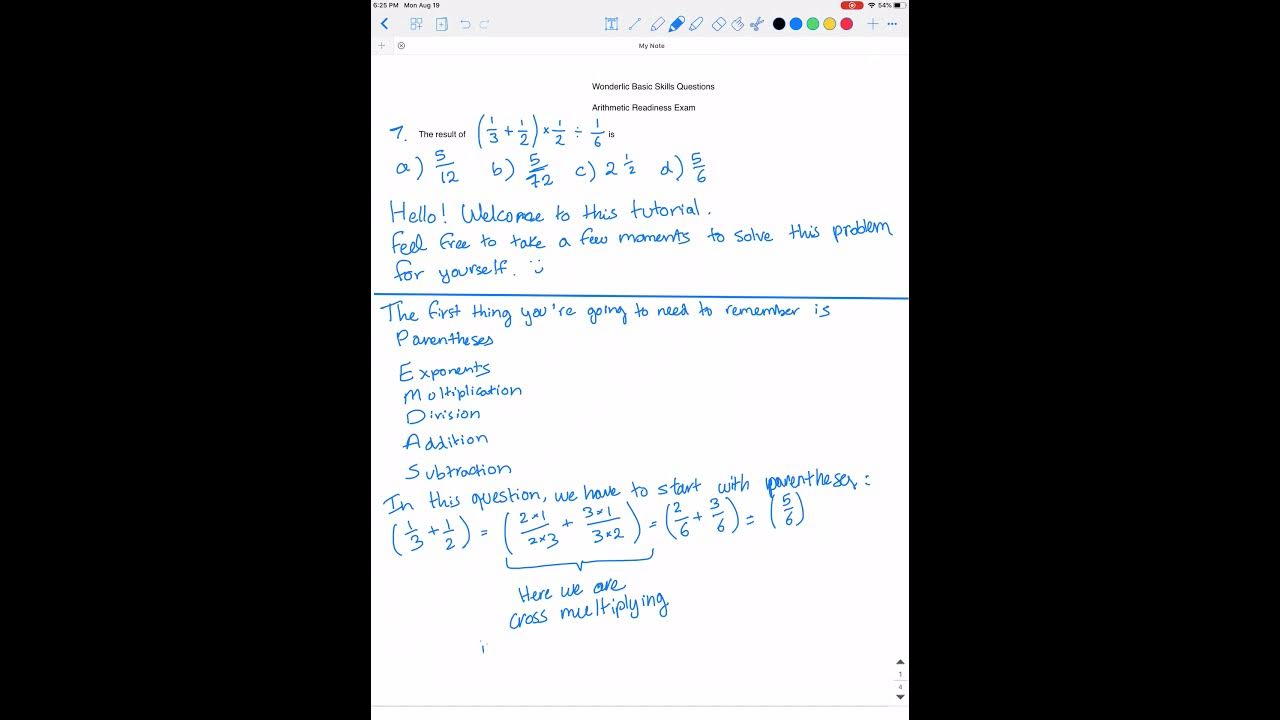 6:25 PM Mon Aug 19
54%
My Note
Wonderlic Basic Skills Questions
Arithmetic Readiness Exam
7. The result of (1/3 + 1/2) × 1/2 ÷ 1/6 is
a) 5/12 b) 5/72 c) 2 1/2 d) 5/6
Hello! Welcome to this tutorial.
Feel free to take a few moments to solve this problem
for yourself. :)
The first thing you're going to need to remember is
Parentheses
Exponents
Multiplication
Division
Addition
Subtraction
In this question, we have to start with parentheses:
(1/3 + 1/2) = (2×1/2×3 + 3×1/3×2) = (2/6 + 3/6) = (5/6)
Here we are
cross multiplying
1
4